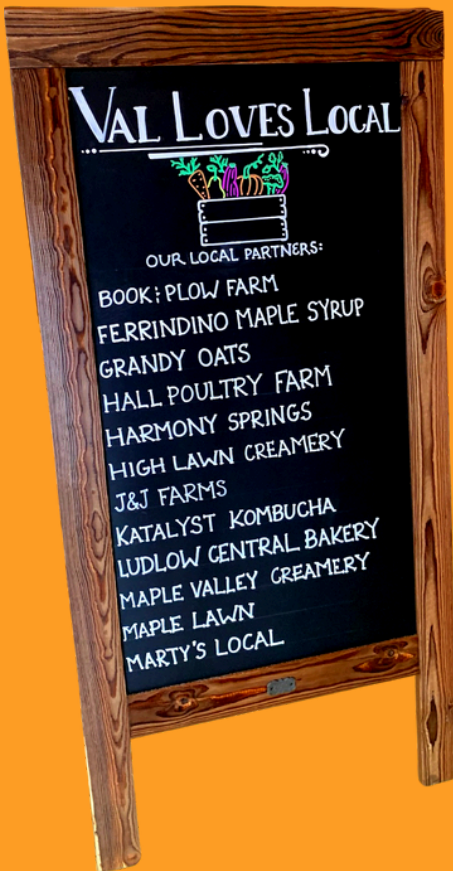 VAL LOVES LOCAL
OUR LOCAL PARTNERS:
BOOK & PLOW FARM
FERRINDINO MAPLE SYRUP
GRANDY OATS
HALL POULTRY FARM
HARMONY SPRINGS
HIGH LAWN CREAMERY
J&J FARMS
KATALYST KOMBUCHA
LUDLOW CENTRAL BAKERY
MAPLE VALLEY CREAMERY
MAPLE LAWN
MARTY'S LOCAL